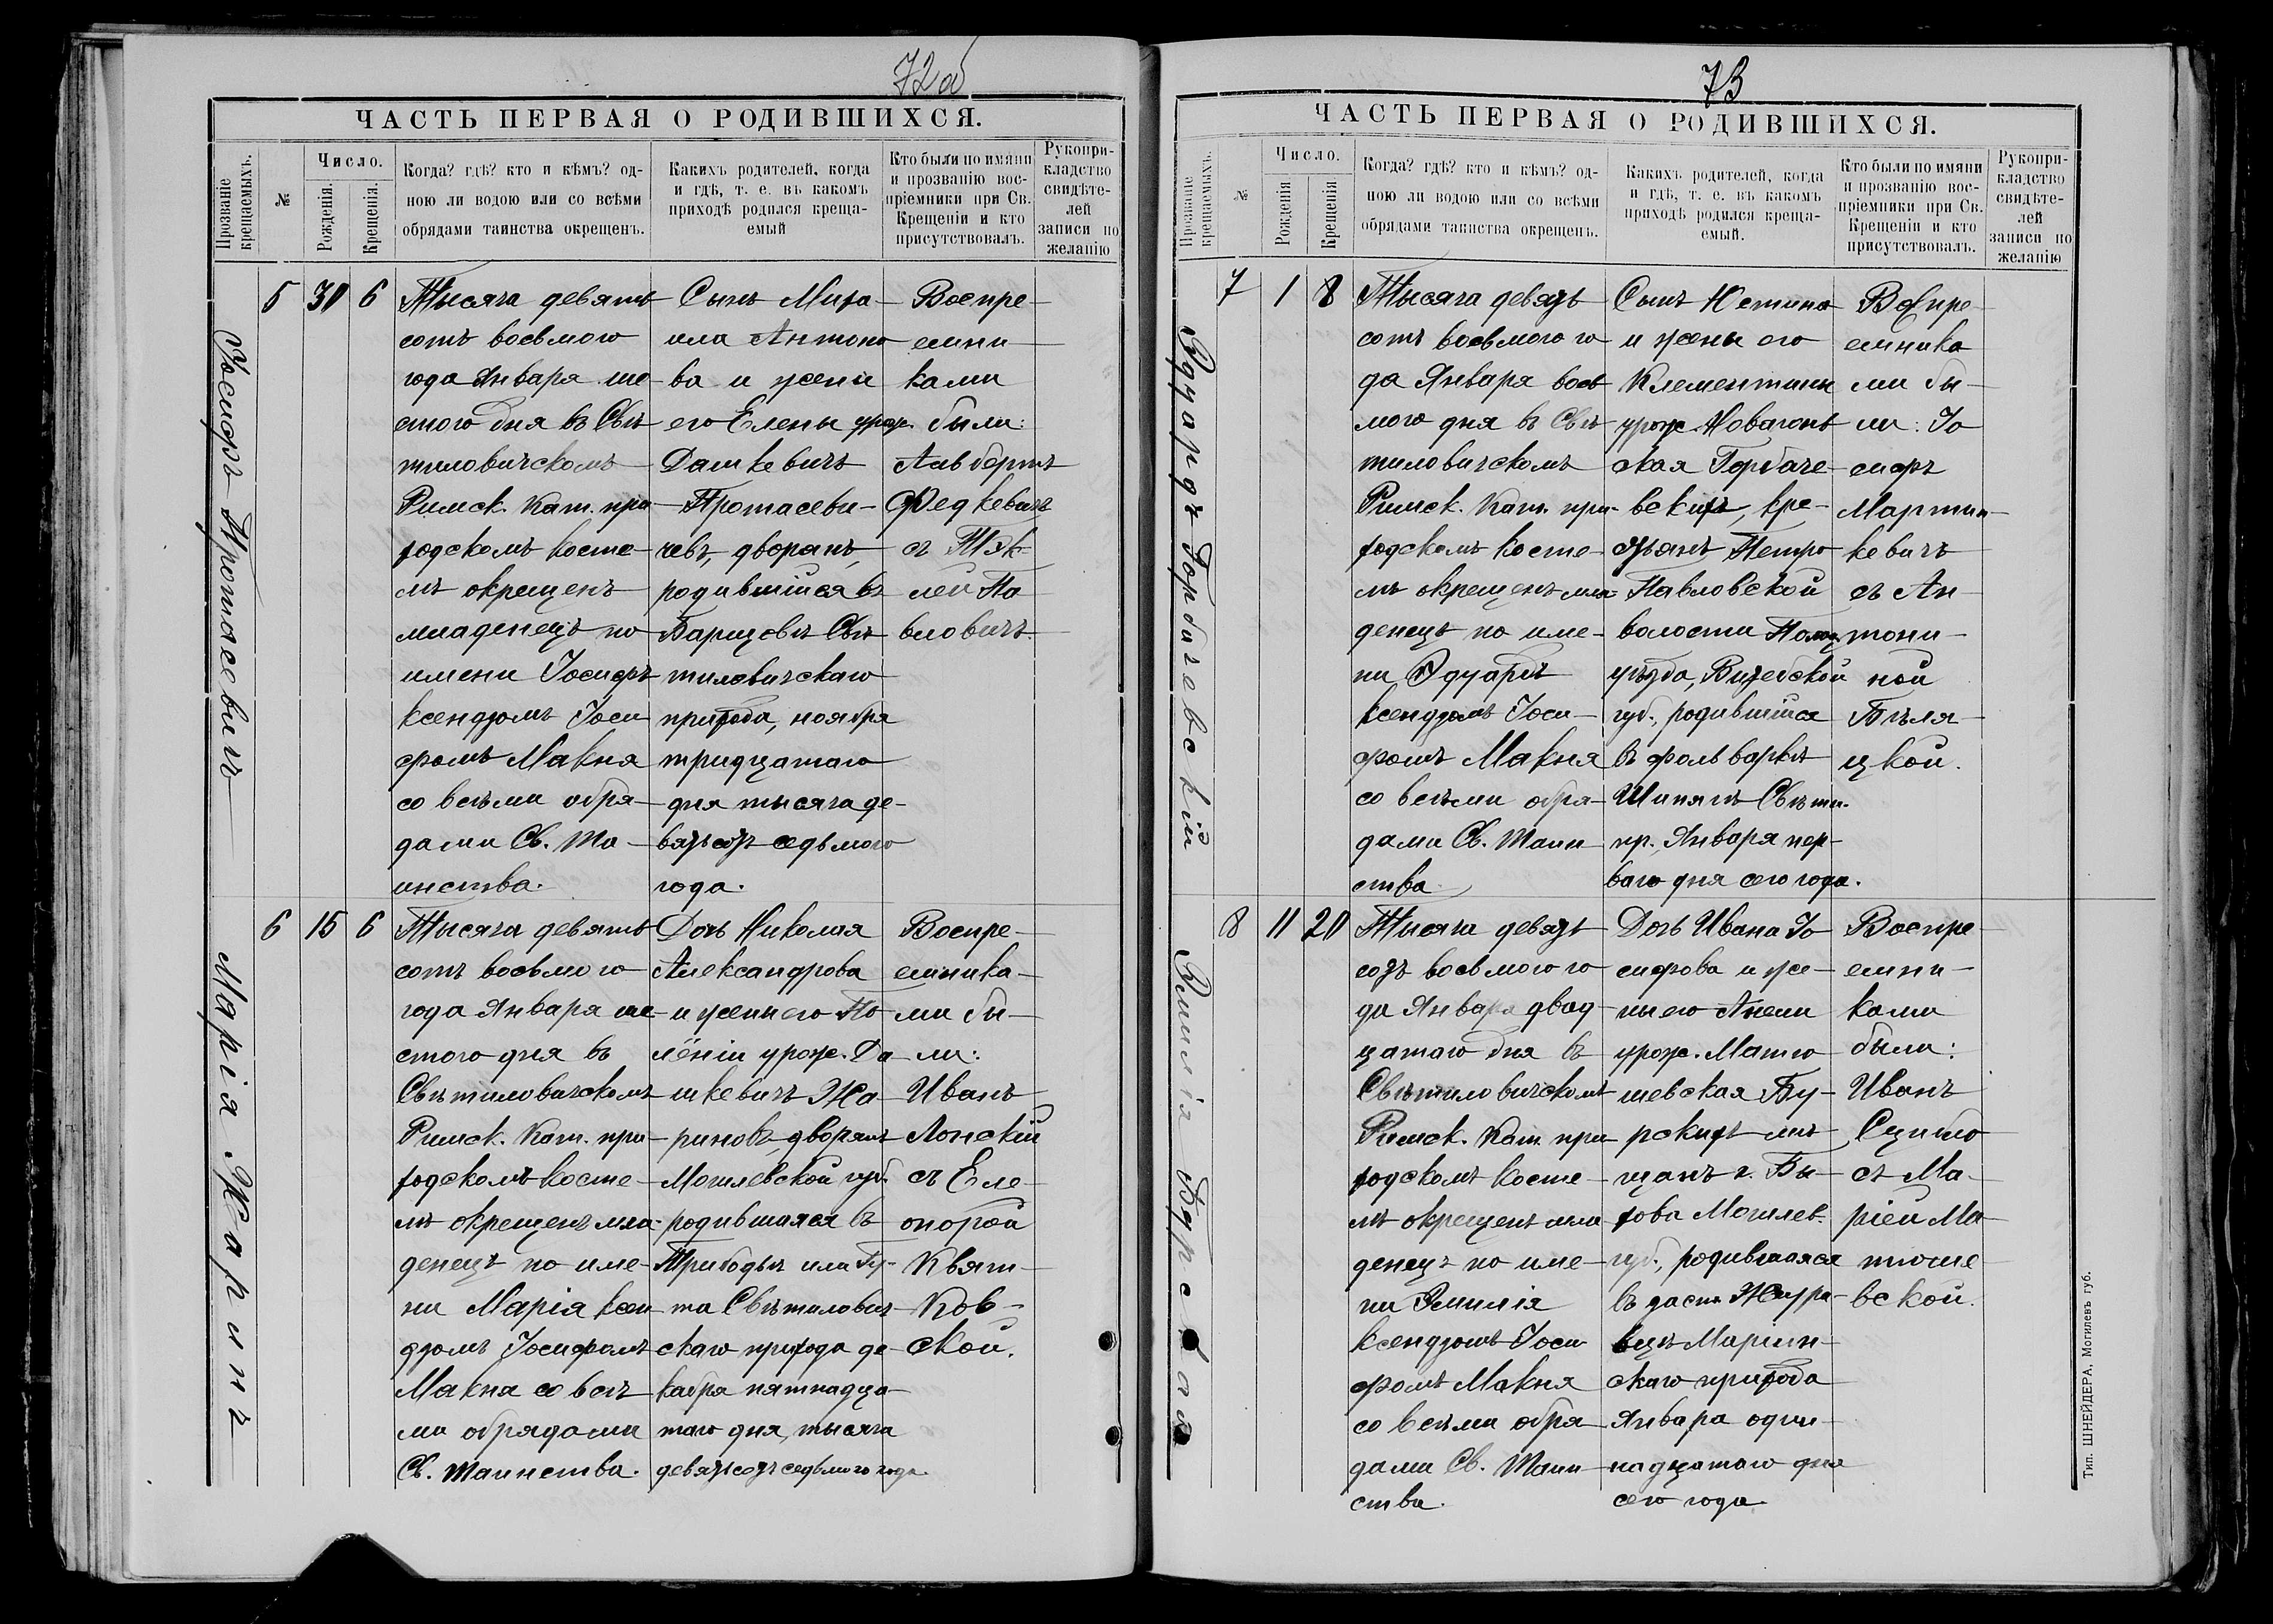 72об
ЧАСТЬ ПЕРВАЯ О РОДИВШИХСЯ.
Прозваніе крещаемыхъ.
№
Число.
Рожденія.
Крещенія.
Когда? гдѣ? кто и кѣмъ? од-
ною ли водою или со всѣми
обрядами таинства окрещенъ.
Какихъ родителей, когда
и гдѣ, т. е. въ какомъ
приходѣ родился креща-
емый
Кто были по имяни
и прозванію вос-
пріемники при Св.
Крещеніи и кто
присутствовалъ.
Рукопри-
кладство
свидѣте-
лей
записи по
желанію
Іосифъ Протасевичъ
5 30 6
Тысяча девять
сотъ восьмого
года Января ше-
стого дня въ Свѣ
тиловичскомъ
Римск. Кат. при
ходскомъ косте-
лѣ окрещенъ
младенецъ по
имени Іосифъ
ксендзомъ Іоси
фомъ Макня
со всѣми обря-
дами Св. Та-
инства.
Сынъ Миха-
ила Антоно
ва и жены
его Елены урож.
Дашкевичъ
Протасеви-
чевъ, дворянъ,
родившійся въ
Барщевѣ Свѣ
тиловичскаго
прихода, ноября
тридцатаго
дня тысяча де-
вятьсотъ седьмого
года.
Воспре-
емни
ками
были:
Альбертъ
Федкевичъ
съ Тэк-
лей Па
вловичъ.
Марія Жаринъ
6 15 6
Тысяча девять
сотъ восьмого
года Января ше-
стого дня въ
Свѣтиловичскомъ
Римск. Кат. при-
ходскомъ косте-
лѣ окрещенъ мла-
денецъ по име-
ни Марія ксен
дзомъ Іосифомъ
Макня со всѣ
ми обрядами
Св. Таинства.
Дочь Николая
Александрова
и жены его По
лёніи урож. Да
шкевичъ Жа
риновъ, дворянъ
Могилевской губ.
родившаяся въ
та Свѣтилович
скаго прихода де-
кабря пятнадца-
таго дня, тысяча
девятьсотъ седьмого года.
Воспре-
емника-
ми бы-
ли:
Иванъ
Лонскій
съ Еле-
онорой
Квят-
ков-
ской.
73
ЧАСТЬ ПЕРВАЯ О РОДИВШИХСЯ.
Прозваніе крещаемыхъ.
№
Число.
Рожденія
Крещенія
Когда? гдѣ? кто и кѣмъ? од-
ною ли водою или со всѣми
обрядами таинства окрещенъ.
Какихъ родителей, когда
и гдѣ, т. е. въ какомъ
приходѣ родился креща-
емый.
Кто были по имяни
и прозванію вос-
пріемники при Св.
Крещеніи и кто
присутствовалъ.
Рукопри-
кладство
свидѣте-
лей
записи по
желанію
Эдуардъ Горбачевскій
7 1 8
Тысяча девять
сотъ восьмого го
да Января вось
мого дня въ Свѣ
тиловичскомъ
Римск. Кат. при-
ходскомъ косте-
лѣ окрещенъ мла-
денецъ по име-
ни Эдуардъ
ксендзомъ Іоси-
фомъ Макня
со всѣми обря-
дами Св. Таин
ства
Сынъ Юстина
и жены его
Клементины
урож. Новагонь
ская Горбаче-
вскихъ, кре-
стьянъ Петро
Павловской
волости Полоц.
уѣзда, Витебской
губ., родившійся
въ фольваркѣ
Шипягѣ Свѣти.
пр. Января пер-
ваго дня сего года.
Воспре-
емника
ми бы-
ли: Іо
сифъ
Мартин-
кевичъ
съ Ан-
тони-
ной
Бѣля-
цкой.
Эмилія Бурская
8 11 20
Тысяча девять
сотъ восьмого го
да Января двад-
цатаго дня въ
Свѣтиловичскомъ
Римск. Кат. при
ходскомъ косте-
лѣ окрещенъ мла
денецъ по име-
ни Эмилія
ксендзомъ Іоси
фомъ Макня
со всѣми обря
дами Св. Таин-
ства.
Дочь Ивана Іо
сифова и же-
ны его Анели
урож. Матю
шевская Бу-
рскихъ мѣ
щанъ г. Бы-
хова Могилев.
губ., родившаяся
въ даст. Жура-
вцѣ Маріин-
скаго прихода
Января один-
надцатаго дня
сего года.
Воспре
емни-
ками
были:
Иванъ
Сцибло
съ Ма-
ріей Ма-
тюше
вской.
Тип. ШНЕЙДЕРА, Могилевъ губ.